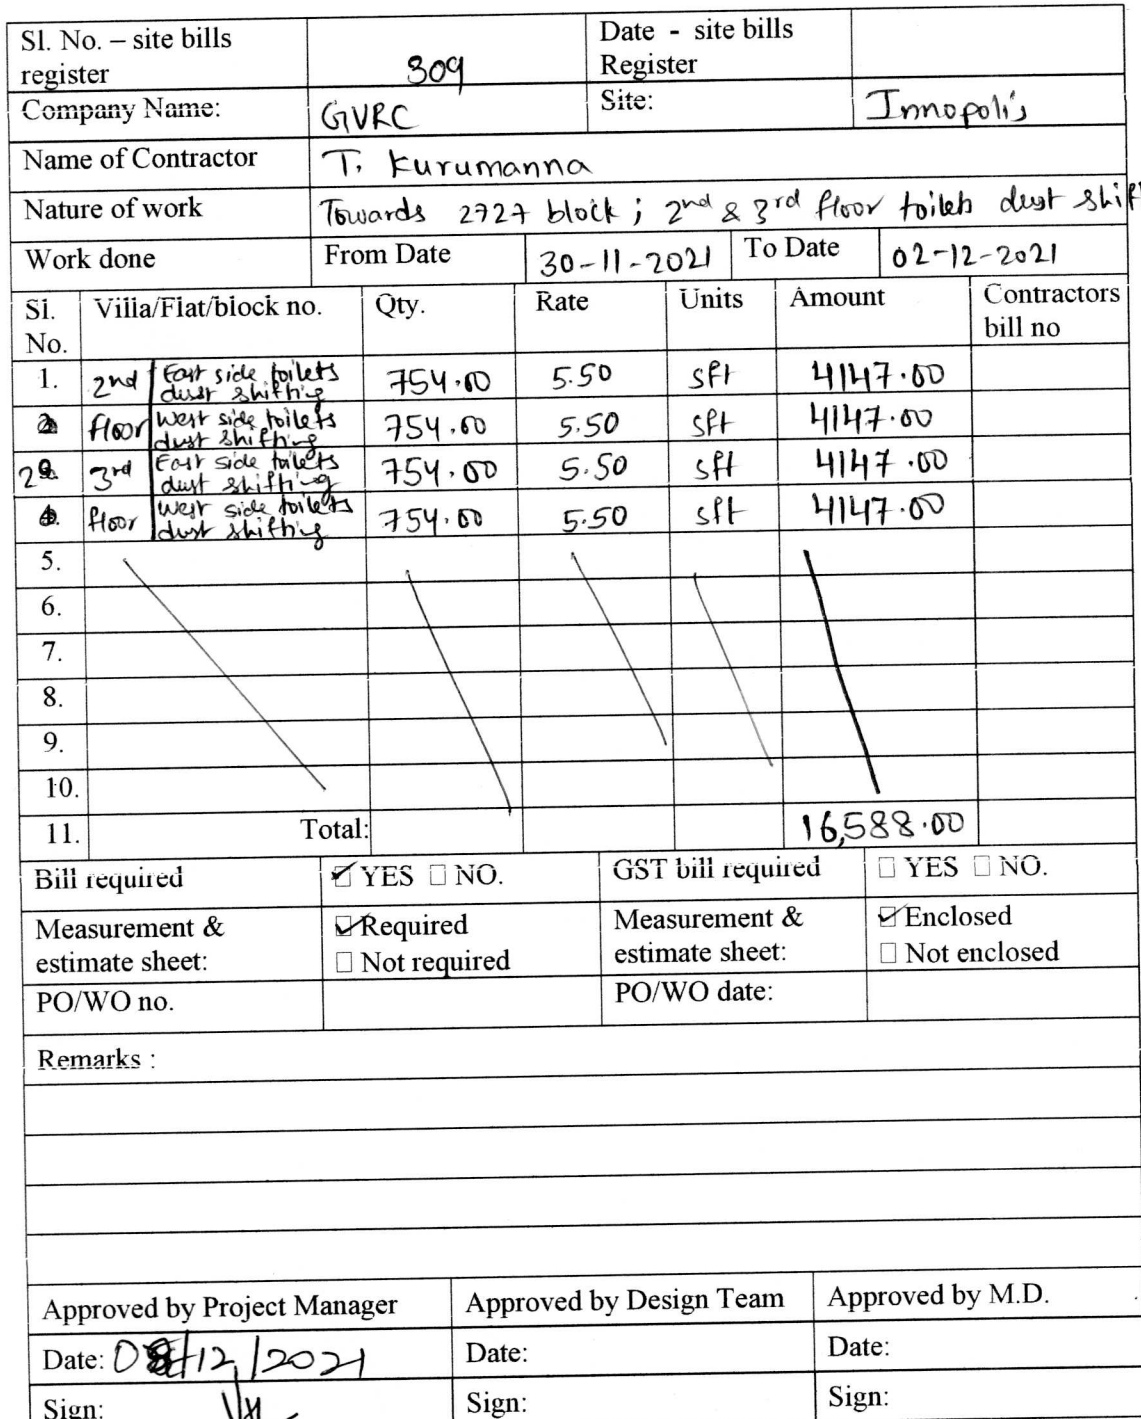 Sl. No. – site bills register 309 Date - site bills Register
Company Name: GVRC Site: Innopolis
Name of Contractor T. Kurumanna
Nature of work Towards 2727 block; 2nd & 3rd floor toilets dust shif
Work done From Date 30-11-2021 To Date 02-12-2021
Sl. No. Villa/Flat/block no. Qty. Rate Units Amount Contractors bill no
1. 2nd East side toilets dust shifting 754.00 5.50 sft 4147.00
floor West side toilets dust shifting 754.00 5.50 sft 4147.00
2 3rd East side toilets dust shifting 754.00 5.50 sft 4147.00
floor West side toilets dust shifting 754.00 5.50 sft 4147.00
5.
6.
7.
8.
9.
10.
11. Total: 16,588.00
Bill required ☑ YES □ NO. GST bill required □ YES □ NO.
Measurement & estimate sheet: ☑ Required □ Not required Measurement & estimate sheet: ☑ Enclosed □ Not enclosed
PO/WO no. PO/WO date:
Remarks :
Approved by Project Manager Approved by Design Team Approved by M.D.
Date: /12/2021 Date: Date:
Sign: Sign: Sign: